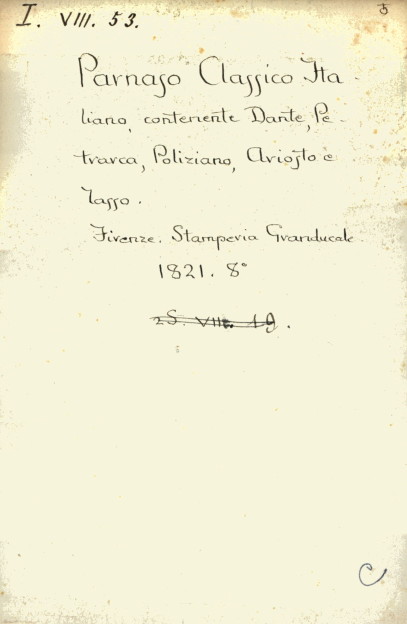 I. VIII. 53.
Parnaso Classico Ita-
liano, contenente Dante, Pe-
trarca, Poliziano, Ariosto e
Tasso.
Firenze. Stamperia Granducale.
1821. 8°
25. VIII. 19.
C